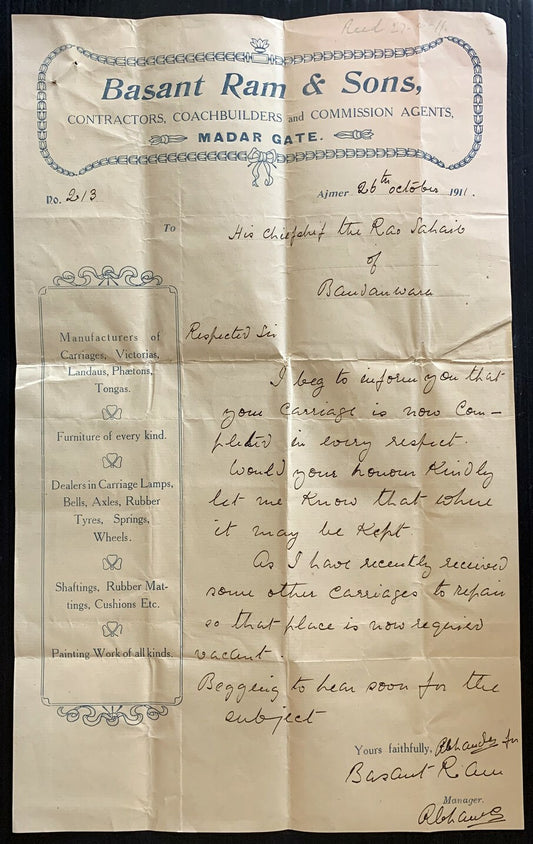 Recd 27-
Basant Ram & Sons,
CONTRACTORS, COACHBUILDERS and COMMISSION AGENTS,
MADAR GATE.
No. 213
Ajmer 26th october 1911.
To
His Chiefchif the Rao Sahaib
of
Bandanwara
Manufacturers of
Carriages, Victorias,
Landaus, Phætons,
Tongas.
Furniture of every kind.
Dealers in Carriage Lamps,
Bells, Axles, Rubber
Tyres, Springs,
Wheels.
Shaftings, Rubber Mat-
tings, Cushions Etc.
Painting Work of all kinds.
Respected Sir
I beg to inform you that
your carriage is now com-
pleted in every respect.
Would your honour kindly
let me know that where
it may be kept.
As I have recently received
some other carriages to repair
so that place is now required
vacant.
Begging to hear soon for the
subject
Yours faithfully, for
Basant Ram
Manager.